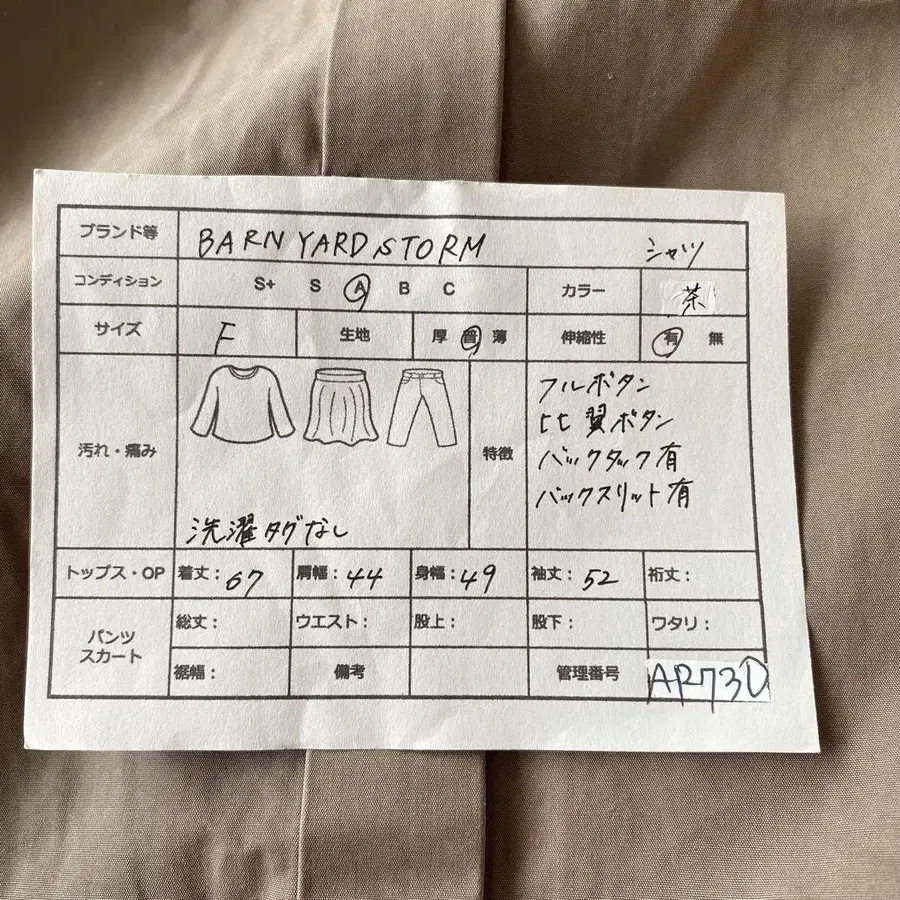 ブランド等 BARNYARDSTORM シャツ
コンディション S+ S A B C カラー 茶
サイズ F 生地 厚 普 薄 伸縮性 有 無
汚れ・痛み 特徴
フルボタン
比翼ボタン
バックタック有
バックスリット有
洗濯タグなし
トップス・OP 着丈：67 肩幅：44 身幅：49 袖丈：52 裄丈：
パンツ
スカート
総丈： ウエスト： 股上： 股下： ワタリ：
裾幅： 備考 管理番号 AP73D